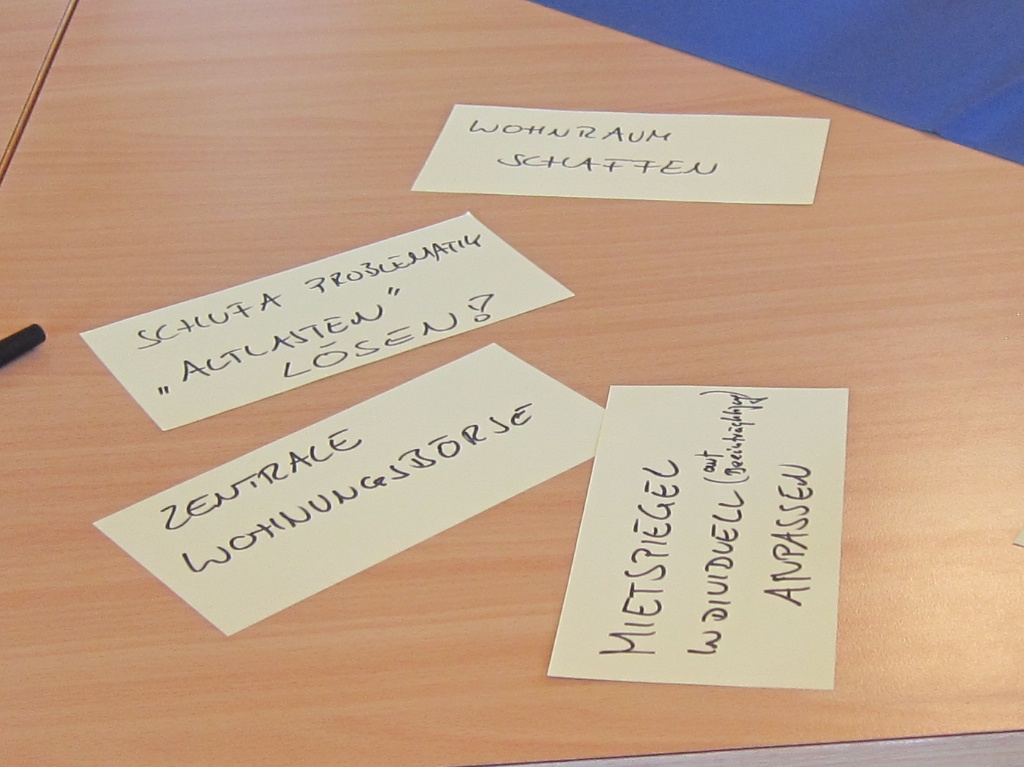 WOHNRAUM
SCHAFFEN
SCHUFA PROBLEMATIK
„ALTLASTEN"
LÖSEN?
ZENTRALE
WOHNUNGSBÖRSE
MIETSPIEGEL
INDIVIDUELL (auf Beeinträchtigung)
ANPASSEN